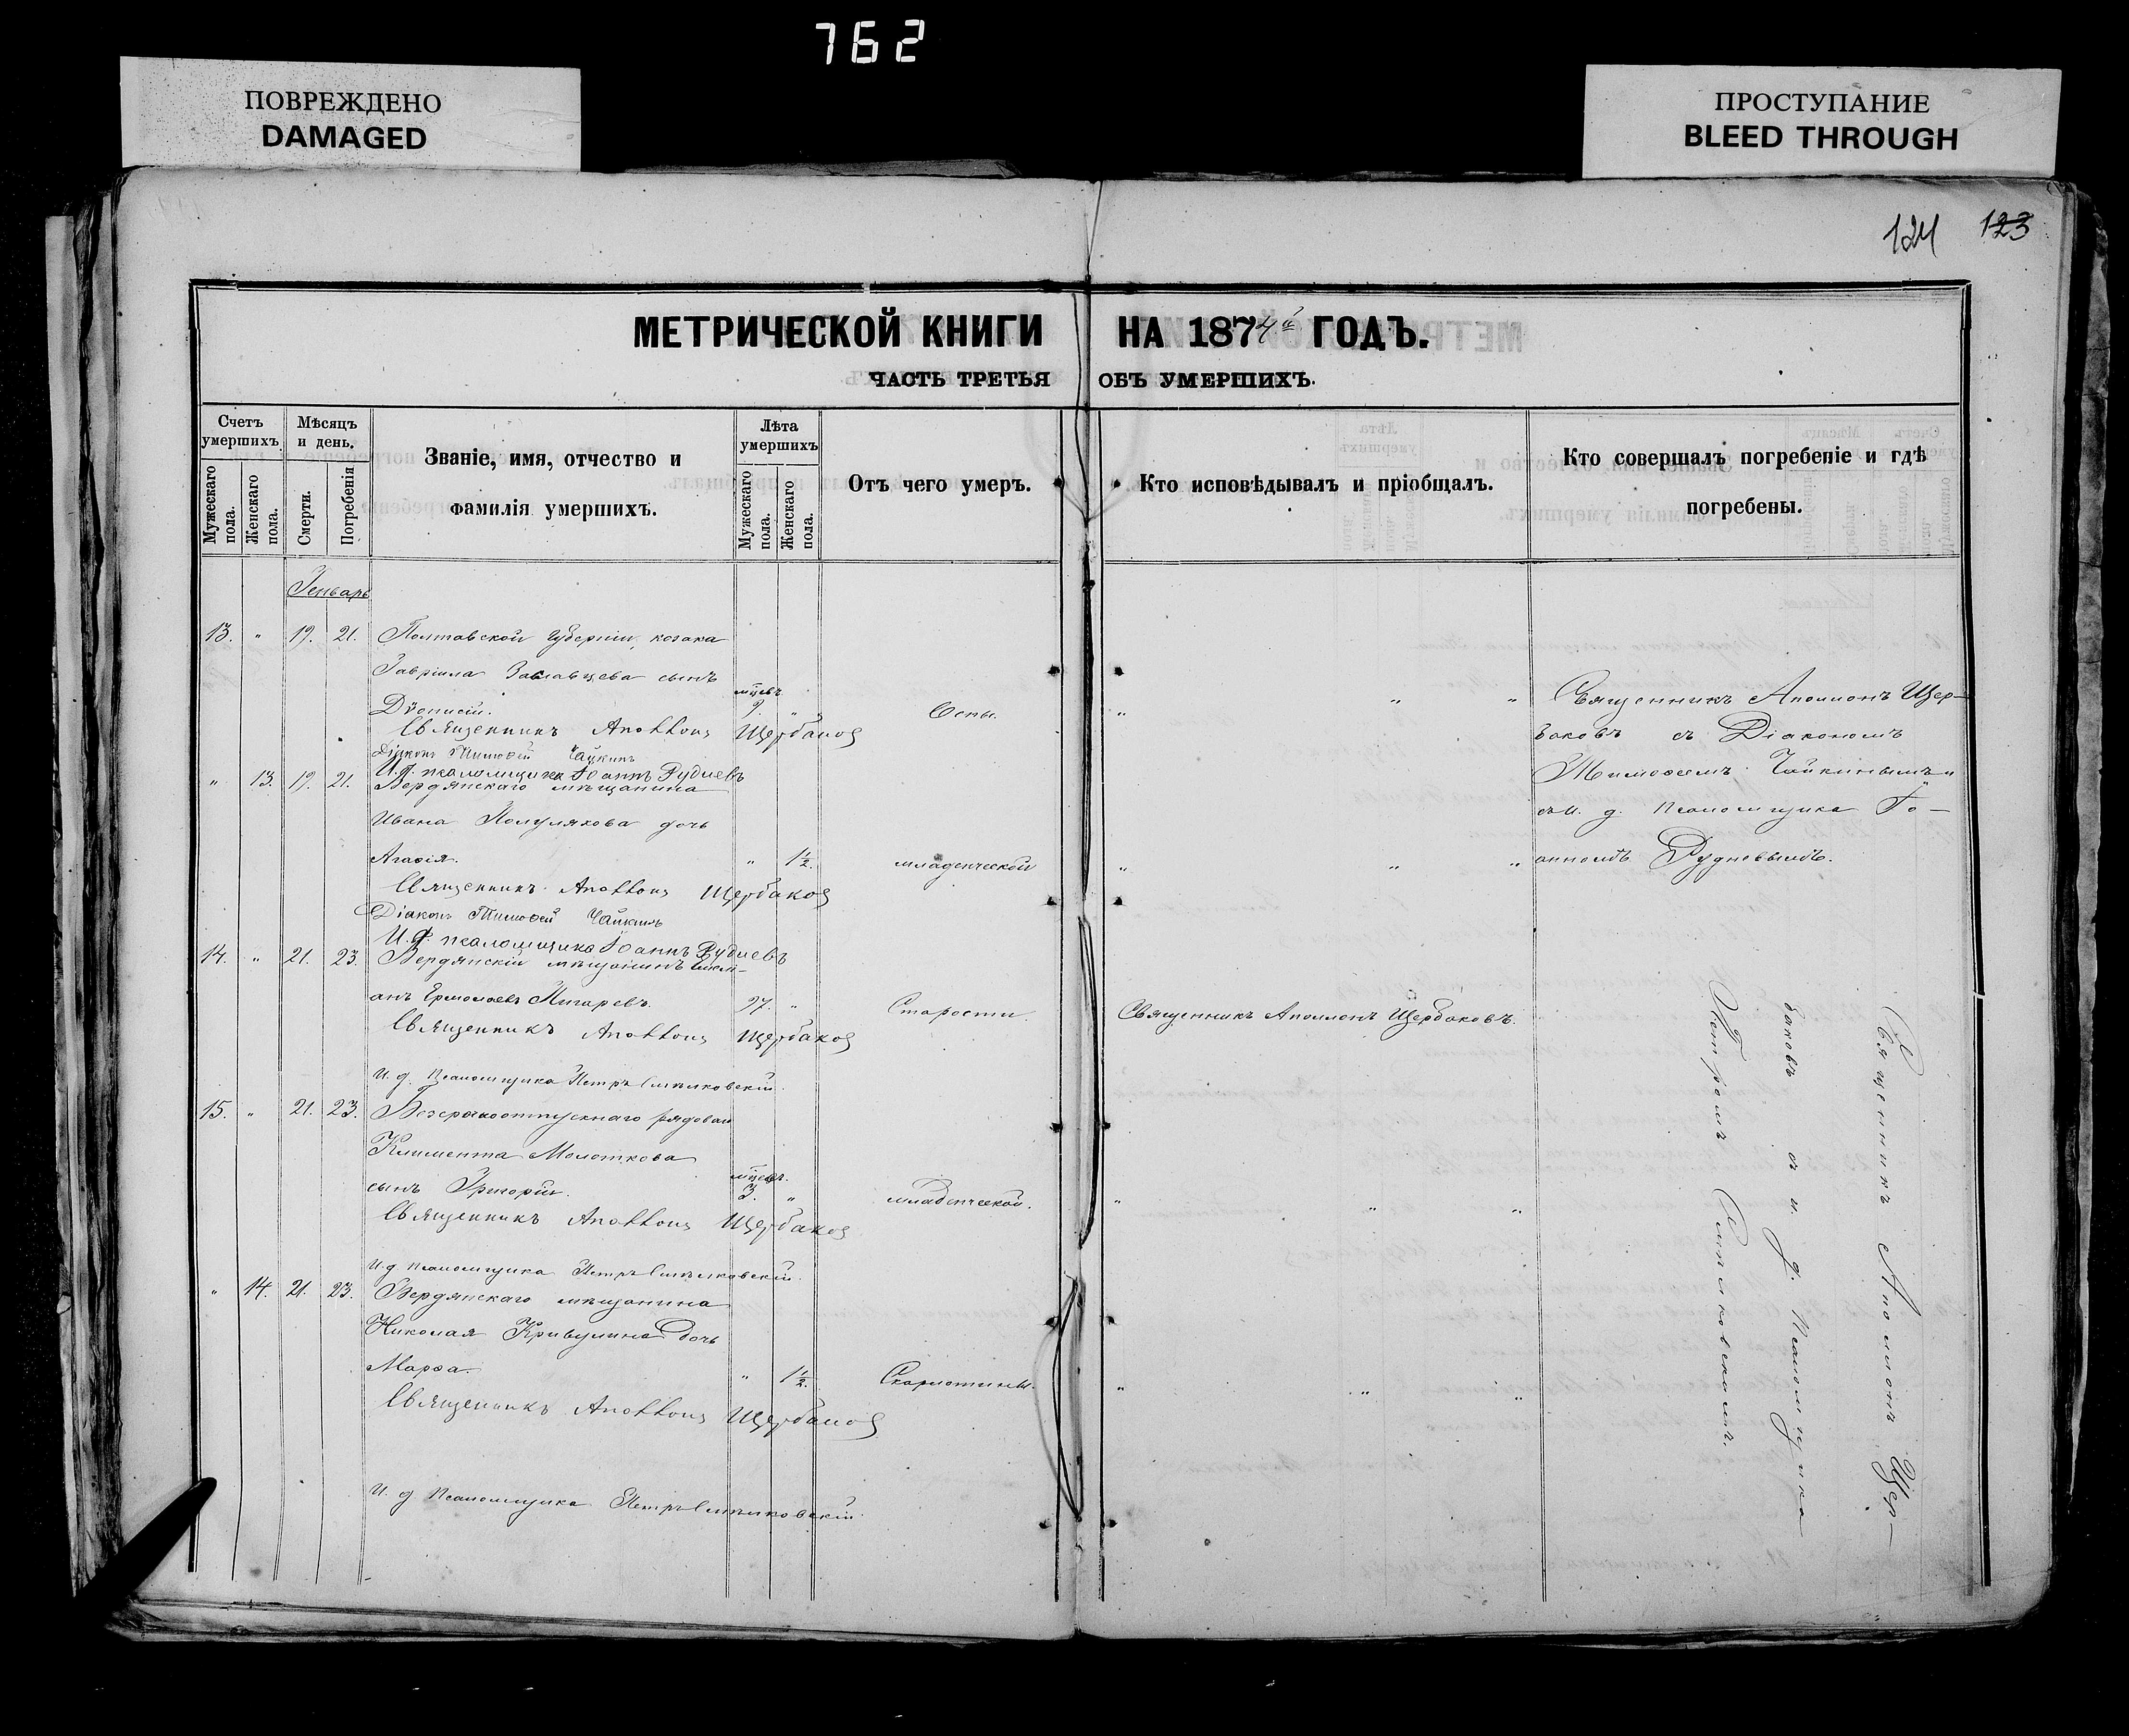 762
ПОВРЕЖДЕНО
DAMAGED
ПРОСТУПАНИЕ
BLEED THROUGH
124 123
МЕТРИЧЕСКОЙ КНИГИ НА 1874й ГОДЪ.
ЧАСТЬ ТРЕТЬЯ ОБЪ УМЕРШИХЪ.
Счетъ умершихъ.
Мужескаго пола.
Женскаго пола.
Мѣсяцъ и день.
Смерти.
Погребенія
Званіе, имя, отчество и
фамилія умершихъ.
Лѣта умершихъ
Мужескаго пола.
Женскаго пола.
Отъ чего умеръ.
Кто исповѣдывалъ и пріобщалъ.
Кто совершалъ погребеніе и гдѣ
погребены.
Генварь
13. " 19. 21. Полтавской Губерніи, козака
Гавріила сынъ
Діонисій. мцевъ 9. " Оспы. " " "
Священникъ Аполлонъ Щербаковъ
Діаконъ Тимофей Чайкинъ
И. д. псаломщика Іоаннъ Рудневъ
Священникъ Аполлонъ Щер-
баковъ съ Діакономъ
Тимофеемъ Чайкинымъ и
съ и. д. Псаломщика Іо-
анномъ Рудневымъ.
" 13. 19. 21. Бердянскаго мѣщанина
Ивана Полулякова дочь
Агафія. " 1½ младенческой " " "
Священникъ Аполлонъ Щербаковъ
Діаконъ Тимофей Чайкинъ
И. д. псаломщика Іоаннъ Рудневъ
14. " 21. 23. Бердянскій мѣщанинъ
анъ Ермолаевъ 97. " Старости. Священникъ Аполлонъ Щербаковъ.
Священникъ Аполлонъ Щербаковъ
И. д. Псаломщика Петръ Смѣлковскій.
15. " 21. 23. Безсрочноотпускнаго рядоваго
Климента Молоткова
сынъ Григорій. мцевъ. 3. " младенческой. " " "
Священникъ Аполлонъ Щербаковъ
И. д. Псаломщика Петръ Смѣлковскій.
" 14. 21. 23. Бердянскаго мѣщанина
Николая Кривулина дочь
Марфа. " 1½. Скарлатины. " " "
Священникъ Аполлонъ Щербаковъ
И. д. Псаломщика Петръ Смѣлковскій.
Священникъ Аполлонъ Щер-
баковъ съ и. д. Псаломщика
Петромъ Смѣлковскимъ.